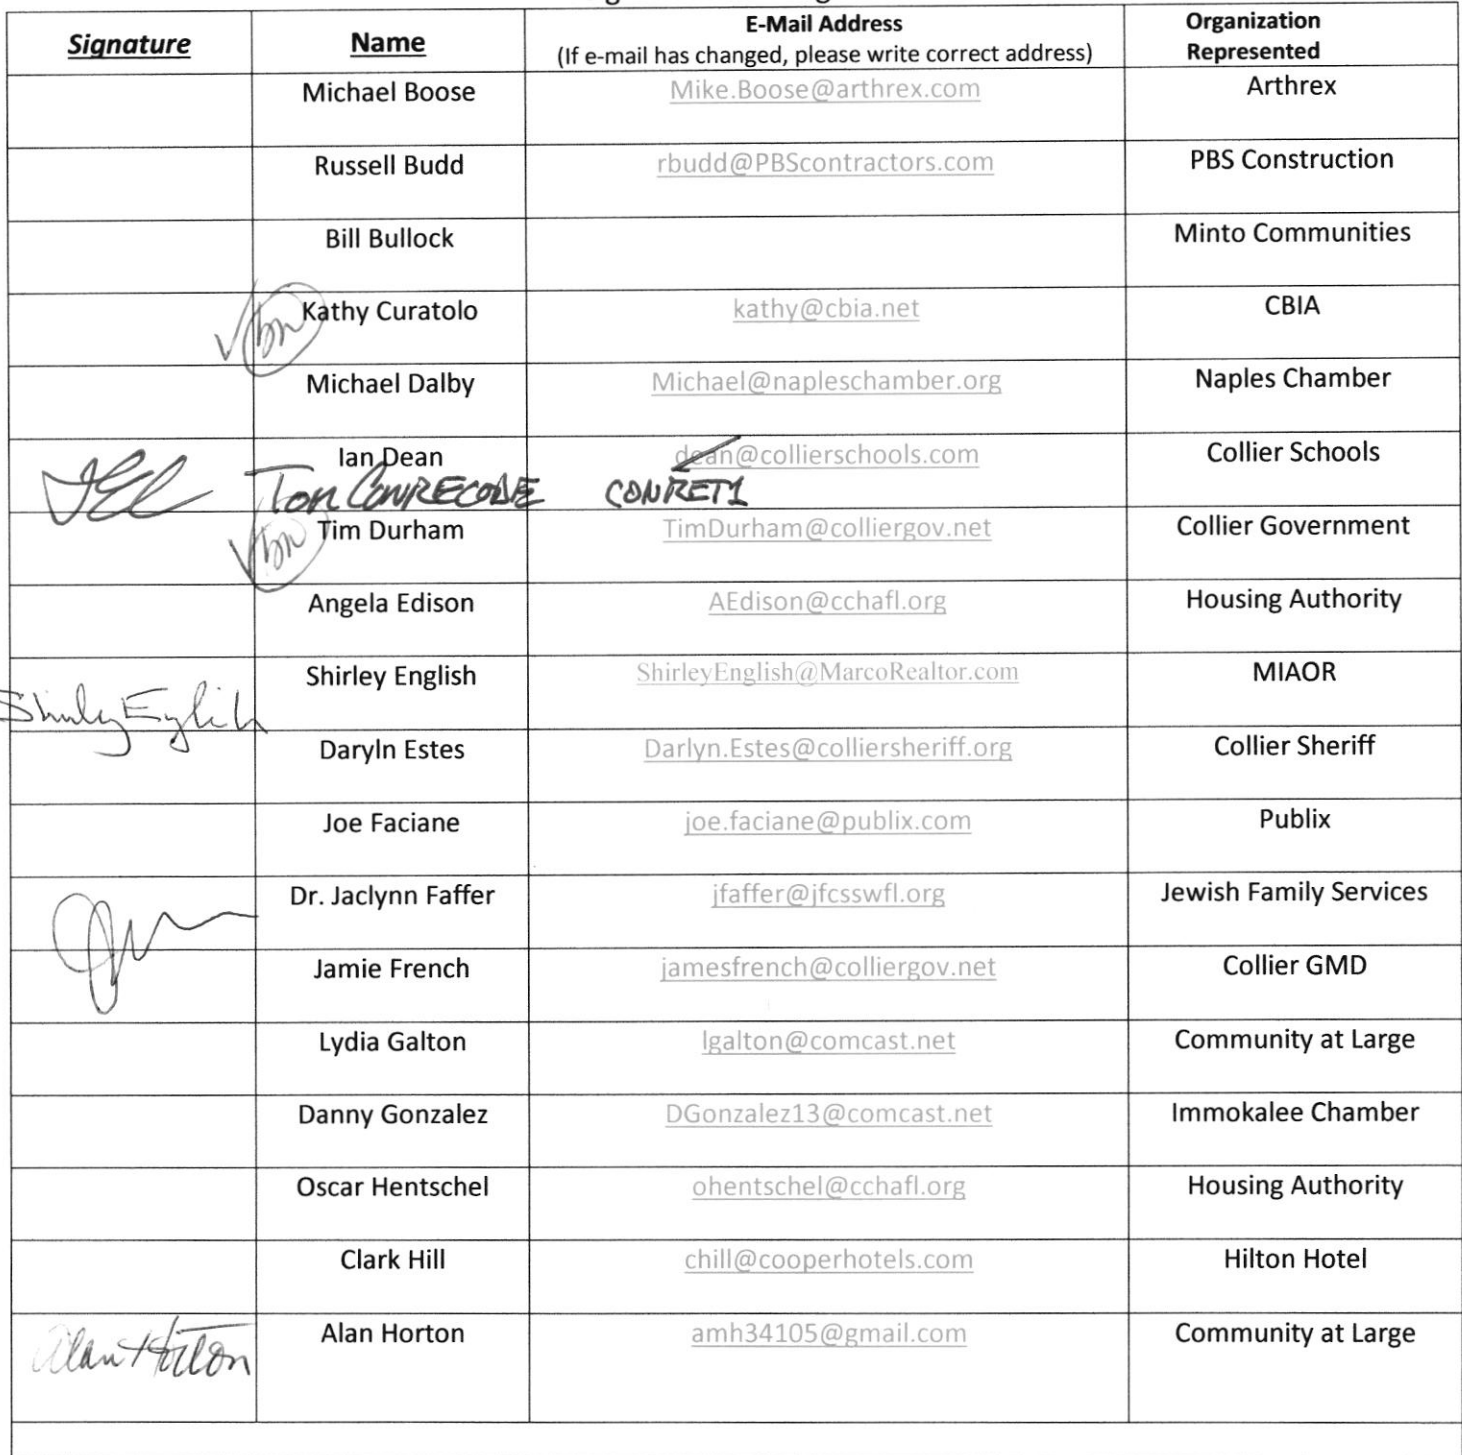 Signature Name E-Mail Address Organization
(If e-mail has changed, please write correct address) Represented
Michael Boose Mike.Boose@arthrex.com Arthrex
Russell Budd rbudd@PBScontractors.com PBS Construction
Bill Bullock Minto Communities
Kathy Curatolo kathy@cbia.net CBIA
Michael Dalby Michael@napleschamber.org Naples Chamber
Ian Dean dean@collierschools.com Collier Schools
Tom Conrecode CONRET1
Tim Durham TimDurham@colliergov.net Collier Government
Angela Edison AEdison@cchafl.org Housing Authority
Shirley English ShirleyEnglish@MarcoRealtor.com MIAOR
Shirley English
Daryln Estes Darlyn.Estes@colliersheriff.org Collier Sheriff
Joe Faciane joe.faciane@publix.com Publix
Dr. Jaclynn Faffer jfaffer@jfcsswfl.org Jewish Family Services
Jamie French jamesfrench@colliergov.net Collier GMD
Lydia Galton lgalton@comcast.net Community at Large
Danny Gonzalez DGonzalez13@comcast.net Immokalee Chamber
Oscar Hentschel ohentschel@cchafl.org Housing Authority
Clark Hill chill@cooperhotels.com Hilton Hotel
Alan Horton Alan Horton amh34105@gmail.com Community at Large